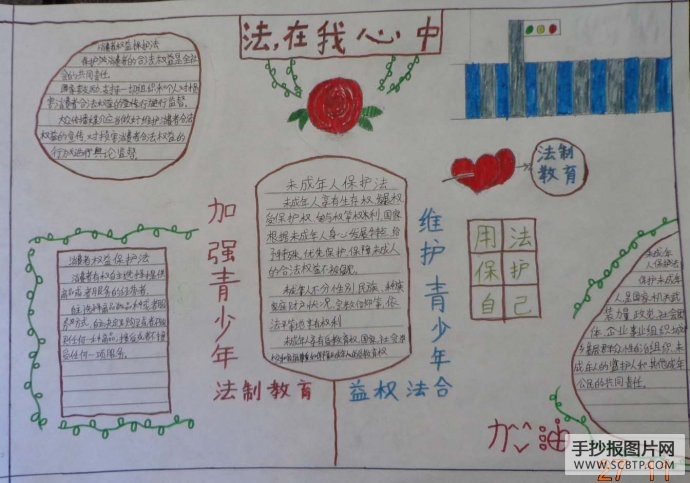 法,在我心中
消费者权益保护法
保护消费者的合法权益是全社
会的共同责任。
国家鼓励,支持一切组织和个人对损
害消费者合法权益的行为进行社会监督。
大众传播媒介应当做好维护消费者合法
权益的宣传,对损害消费者合法权益的
行为进行舆论监督。
法制
教育
未成年人保护法
未成年人享有生存权、发展权
受保护权、参与权等权利,国家
根据未成年人身心发展特点给
予特殊、优先保护,保障未成人
的合法权益不被侵犯。
未成年人不分性别、民族、种族
家庭财产状况、宗教信仰等,依
法平等地享有权利
未成年人享有受教育权,国家、社会、学
加强青少年
法制教育
维护青少年
益权法合
用法
保护
自己
消费者权益保护法
消费者有权自主选择提供
商品或者服务的经营者,
任何一种商品、接受或者不接
受任何一项服务。
未成年
人保护法
保护未成年
人,是国家机关、武
装力量、政党、社会团
体、企业事业组织、城
乡基层群众性自治组织、未
成年人的监护人和其他成年
公民的共同责任。
加油
手抄报图片网
WWW.SCBTP.COM
27 11